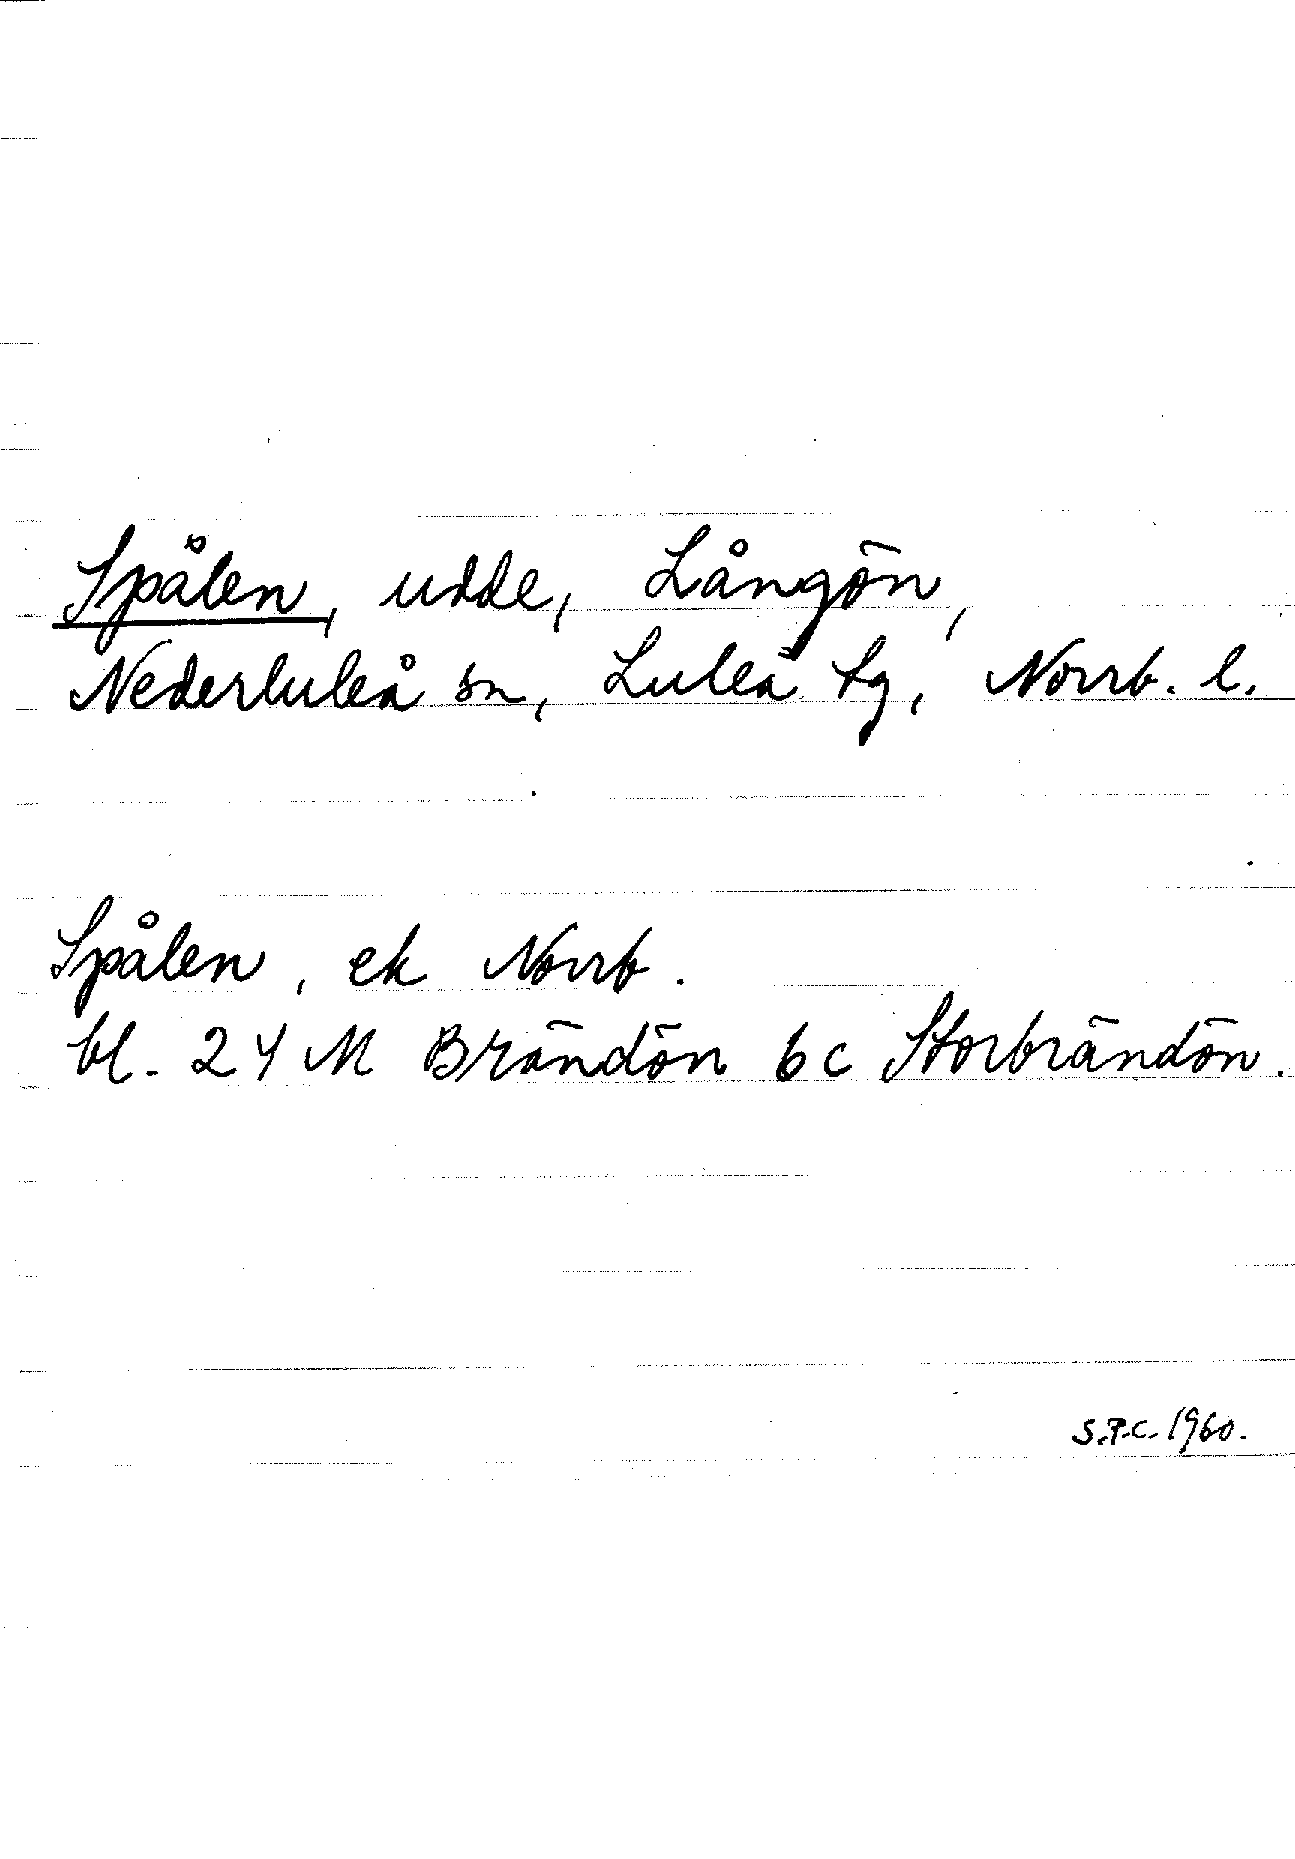 Spålen, udde, Långön,
Nederluleå sn, Luleå tg, Norrb. l.
Spålen, ek Norrb.
bl. 24 M Brändön 6 c Storbrändön.
S.P.C. 1960.